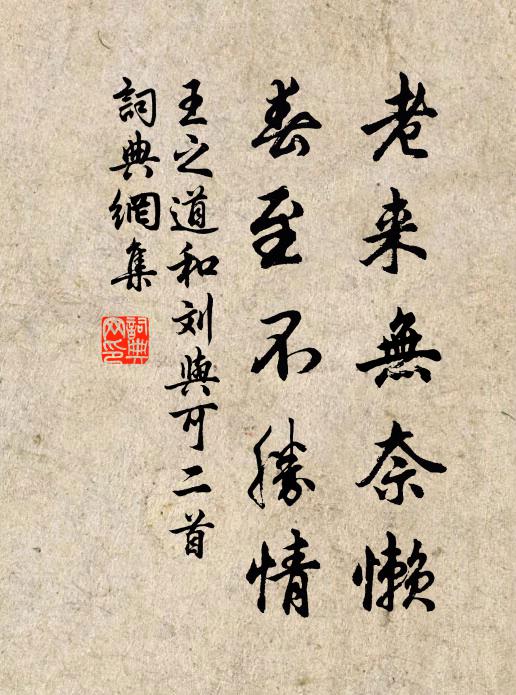 老来無奈懒
春至不勝情
王之道和刘與可二首
詞典網集
詞典网印